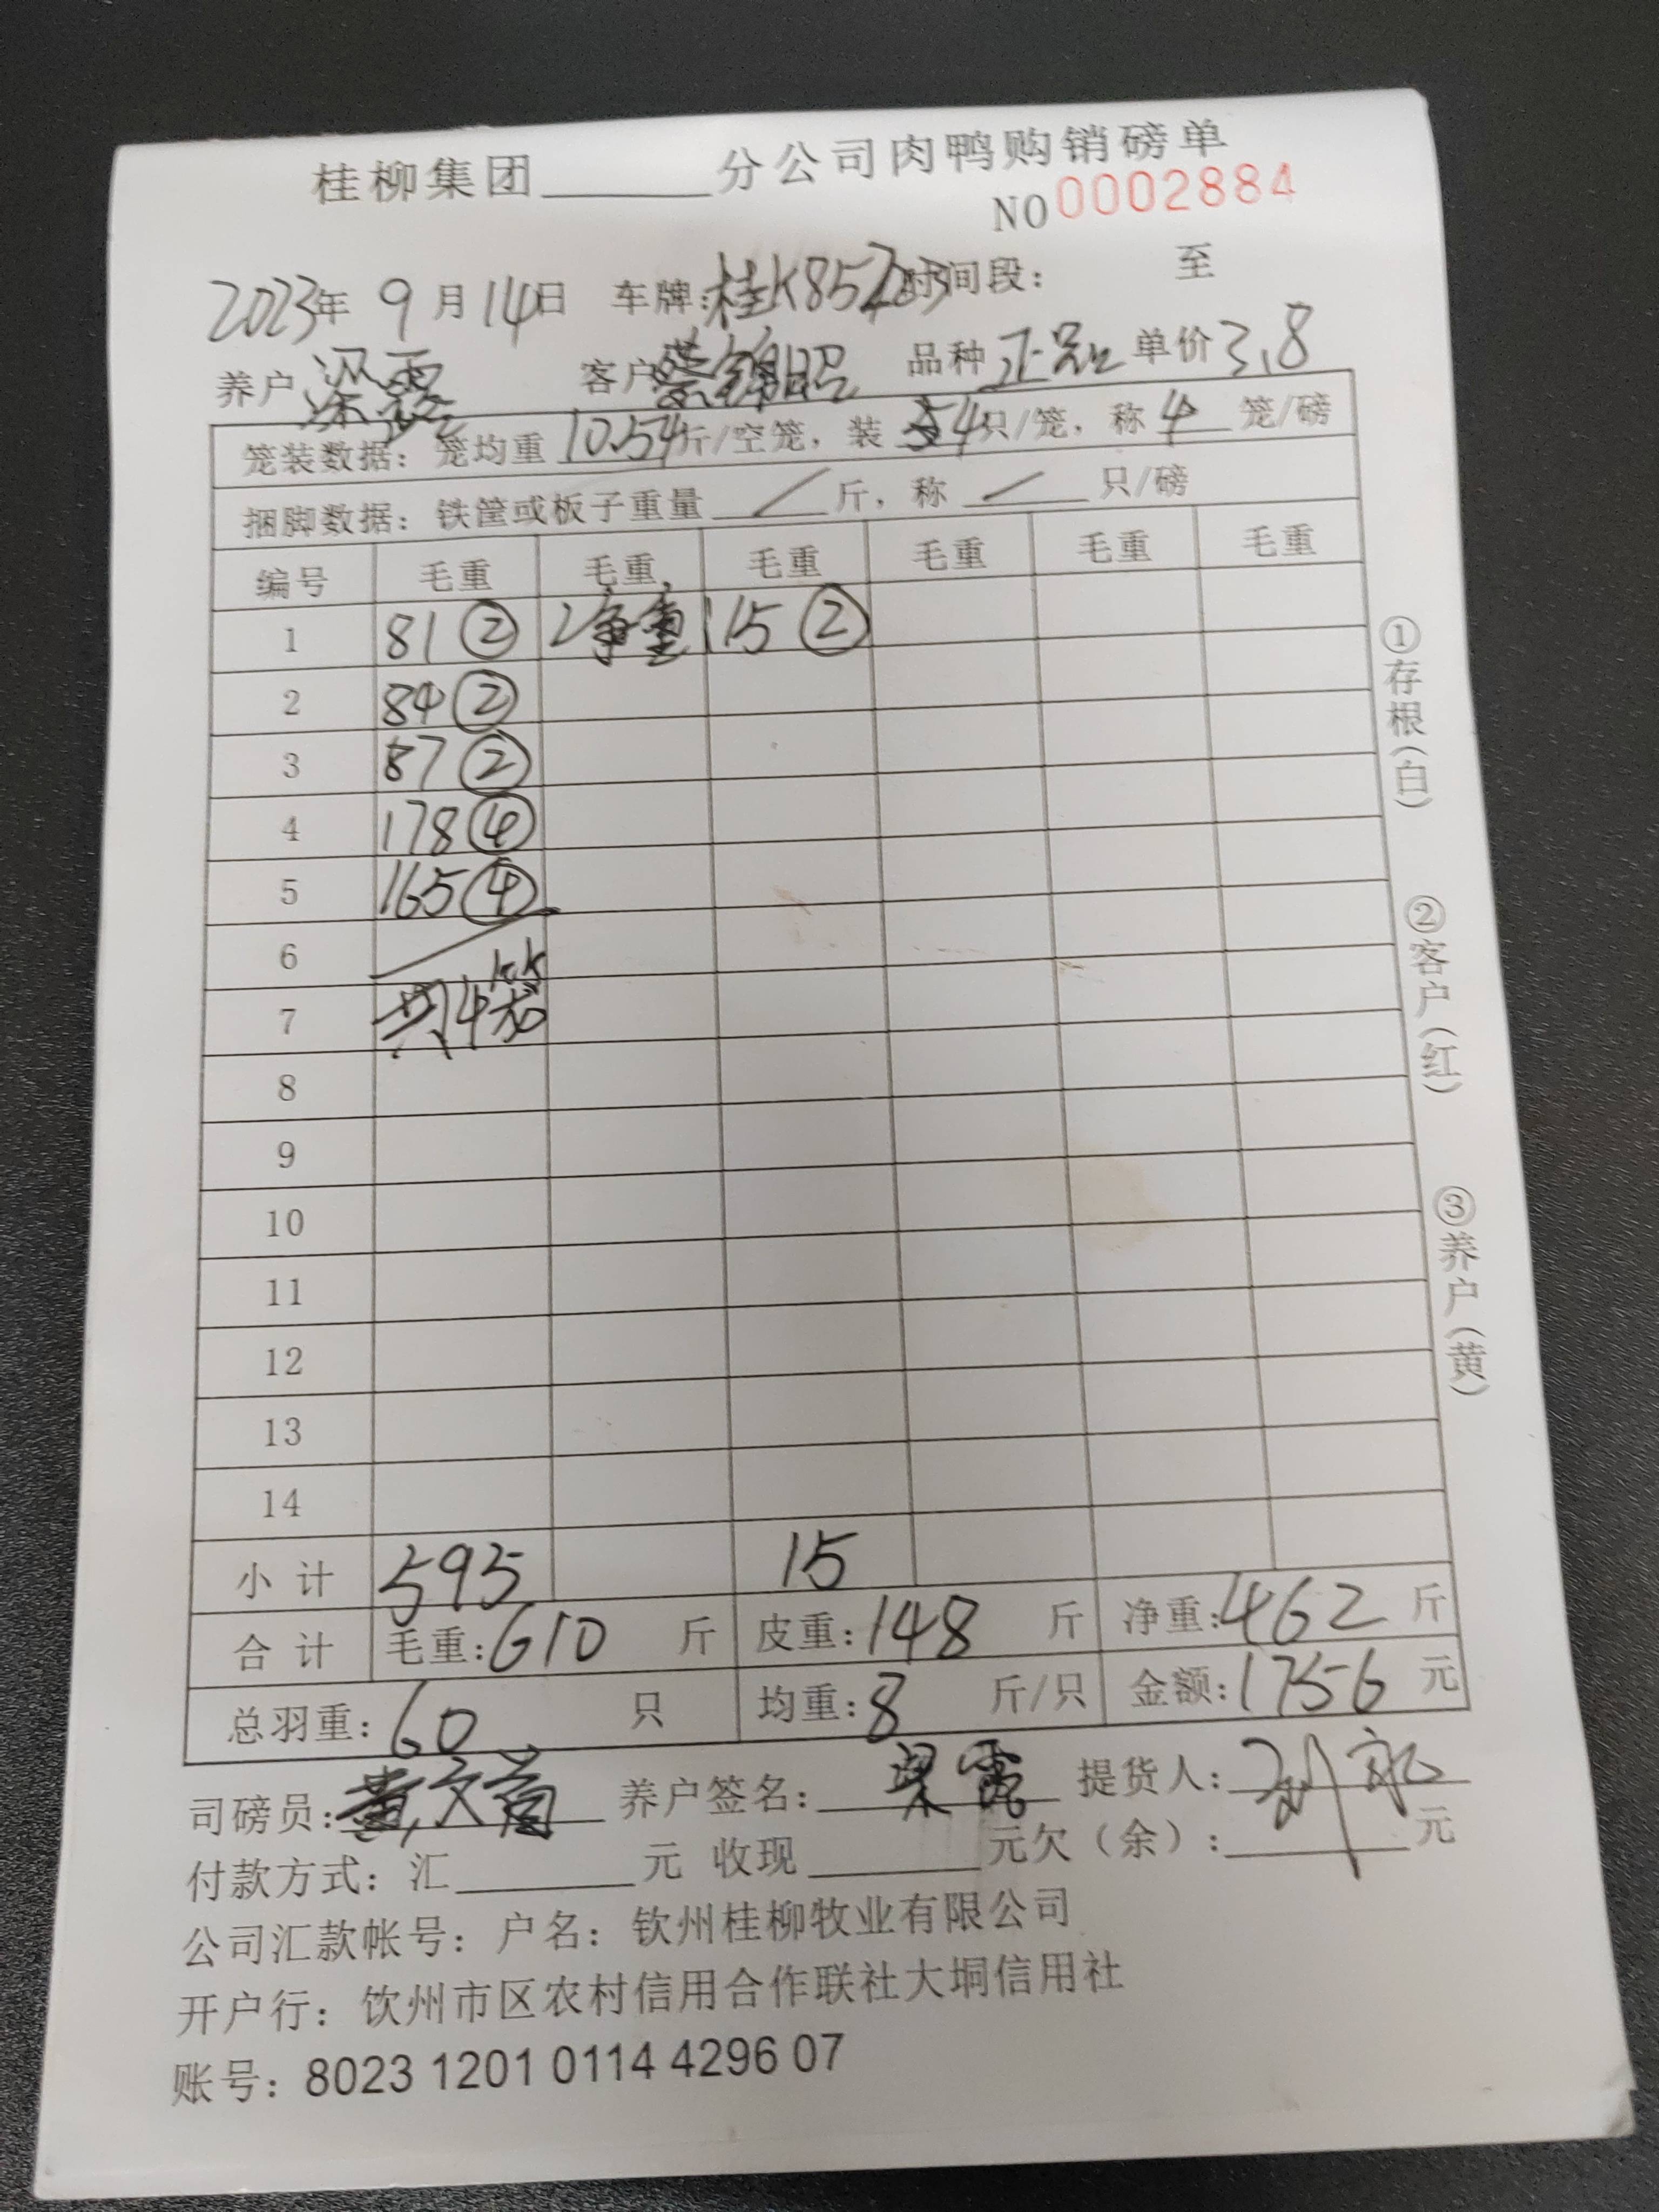 桂柳集团______分公司肉鸭购销磅单
NO 0002884
2023年 9月14日 车牌:桂K85 时间段: 至
养户 梁露 客户 蔡锦昭 品种 正品 单价 3.8
笼装数据: 笼均重 10.54斤/空笼, 装 4只/笼, 称 4 笼/磅
捆脚数据: 铁筐或板子重量 / 斤, 称 / 只/磅
编号 毛重 毛重 毛重 毛重 毛重 毛重
1 81② 净重 15②
2 84②
3 87②
4 178④
5 165④
6
7 共14笼
8
9
10
11
12
13
14
小计 595 15
合计 毛重:610 斤 皮重:148 斤 净重:462 斤
总羽重:60 只 均重:8 斤/只 金额:1756 元
司磅员:黄文 养户签名:梁露 提货人:
付款方式: 汇______元 收现______元欠(余):______元
公司汇款帐号: 户名: 钦州桂柳牧业有限公司
开户行: 饮州市区农村信用合作联社大垌信用社
账号: 8023 1201 0114 4296 07
①存根(白)
②客户(红)
③养户(黄)